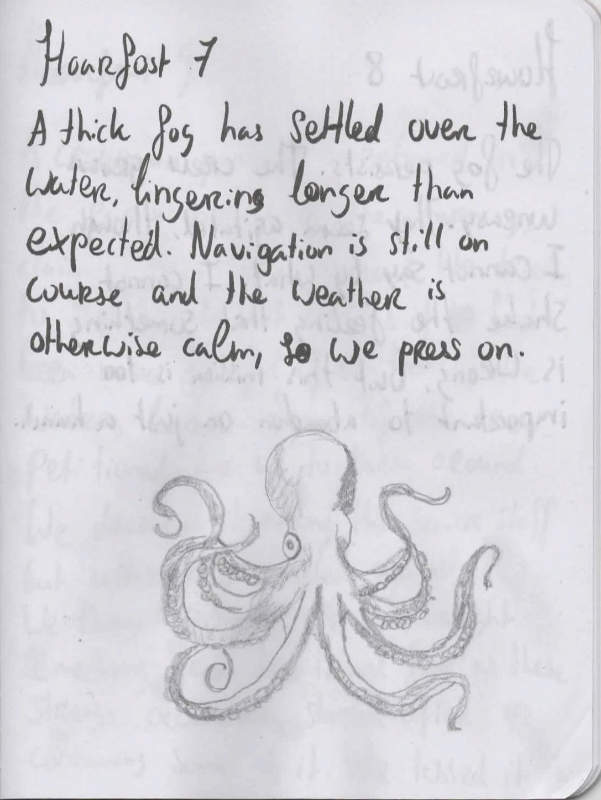 Hoarfost 7
A thick fog has settled over the
water, lingering longer than
expected. Navigation is still on
course and the weather is
otherwise calm, so we press on.